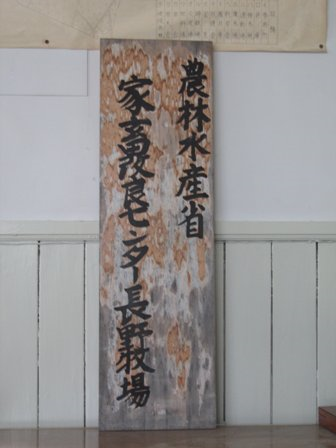 農林水産省
家畜改良センター長野牧場